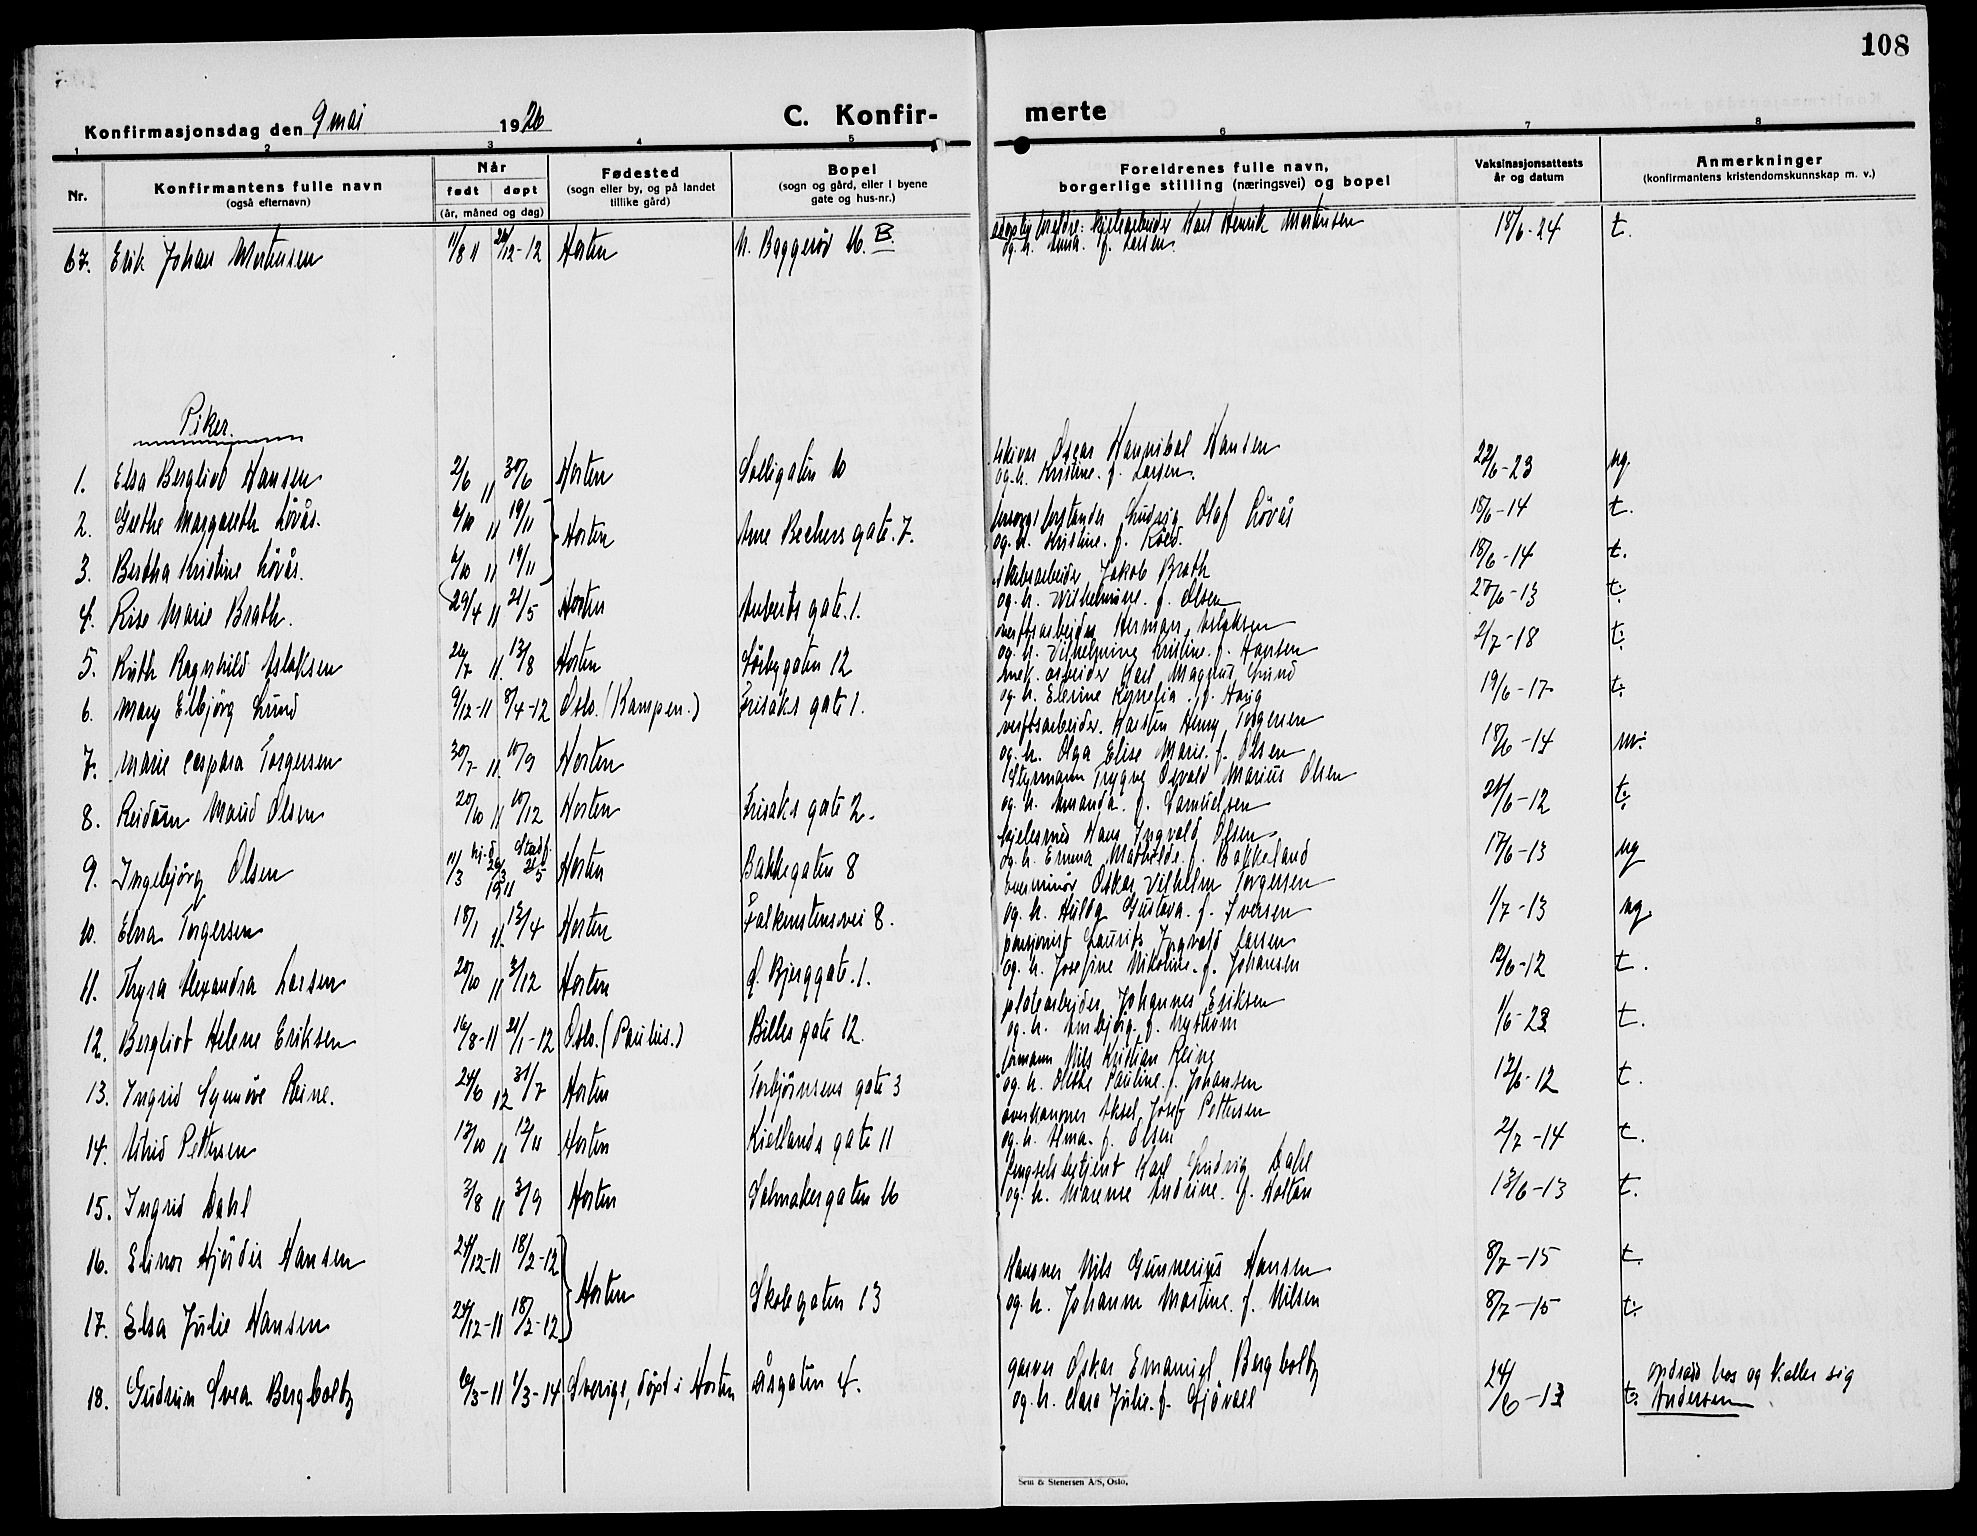 108
Konfirmasjonsdag den 9 mai 1926 C. Konfir- merte
1 2 3 4 5 6 7 8
Nr. Konfirmantens fulle navn (også efternavn) Når født døpt (år, måned og dag) Fødested (sogn eller by, og på landet tillike gård) Bopel (sogn og gård, eller i byene gate og hus-nr.) Foreldrenes fulle navn, borgerlige stilling (næringsvei) og bopel Vaksinasjonsattests år og datum Anmerkninger (konfirmantens kristendomskunnskap m. v.)
67. Erik Johan Mortensen 11/8 11 26/12-12 Horten N. Baggerød 16. B. Karl Henrik Mortensen 18/6-24 t.
og h. Anna f. Larsen.
Piker.
1. Elsa Bergliot Hansen 2/6 11 30/6 Horten Solligaten 10 Oscar Hannibal Hansen 22/6-23 ng.
og h. Kristine f. Larsen.
2. Grethe Margareth Lövås. 6/10 11 19/11 Horten Arne Bechers gate. 7. Ludvig Olaf Lövås 18/6-14 t.
og h. Kristine. f. Roed.
3. Bertha Kristine Lövås. 6/10 11 19/11 18/6-14 t.
4. Lise Marie Brath. 29/4 11 21/5 Horten Auberts gate. 1. Jakob Brath 27/6-13 t.
og h. Wilhelmine. f. Olsen
5. Ruth Ragnhild Aslaksen 26/7 11. 13/8 Horten Sörbygaten 12 verftsarbeider Herman Aslaksen 2/7-18 t.
og h. Vilhelmine Kristine f. Hansen
6. Mary Elbjörg Lund 9/12-11 8/4-12 Oslo. (Kampen.) Frisaks gate 1. mek. arbeider Karl Magnus Lund 19/6-17 t.
og h. Elerine Kornelia. f. Haug
7. Marie Caspara Torgersen 30/7-11. 10/9 Horten verftsarbeider. Karsten Henry Torgersen 18/6-14 m.
og h. Olga Elise Marie. f. Olsen
8. Reidun Maud Olsen 20/10 11 10/12 Horten Frisaks gate 2. Styrmann Trygve Osvald Marius Olsen 21/6-12 t.
og h. Amanda. f. Samuelsen
9. Ingebjörg Olsen 11/3 hj.d 26/3 1911 Stadf. 21/5 Horten Bakkegaten 8 kjelesmed Hans Ingvald Olsen. 17/6-13 ng
og h. Emma Mathilde. f. Bakkeland
10. Elna Torgersen 18/1 11. 13/4 Horten Falkenstensvei 8. overminör Oskar Vilhelm Torgersen 1/7-13 ng.
og h. Hulda Gustava. f. Iversen
11. Thyra Alexandra Larsen 20/10 11 3/12 Horten Q. Bjerggate. 1. pensjonist Laurits Ingvald Larsen 12/6-12 t.
og h. Josefine Nikoline. f. Johansen
12. Bergliot Helene Eriksen 16/8-11 21/1-12 Oslo. (Paulus.) Billes gate 12. platearbeider Johannes Eriksen 1/6-23 t.
og h. Annbjörg. f. Nyström
13. Ingrid Synnöve Reine. 24/6 12 31/7 Horten Torbjörnsens gate 3 formann Nils Kristian Reine 12/6-12 t.
og h. Olethe Pauline. f. Johansen
14. Astrid Pettersen 13/10 11 12/11 Horten Kiellands gate 11 overkanoner Aksel Josef Pettersen 2/7-14 t.
og h. Alma. f. Olsen
15. Ingrid Dahl 3/8 11 3/9 Horten Salmakergaten 16 fengselsbetjent Karl Ludvig Dahl 13/6-13 t.
og h. Marense Andrine. f. Holtan
16. Elinor Hjördis Hansen 24/12-11 18/2-12 Horten Skolegaten 13 Kanoner Nils Gunnerius Hansen 8/7-15 t.
17. Elsa Julie Hansen 24/12-11 18/2-12 og h. Johanne Martine. f. Nilsen 8/7-15 t.
18. Gudrun Svea Bergboltz 6/3-11 1/3-14 Sverige, döpt i Horten Åsgaten 4. garver Oskar Emanuel Bergboltz 24/6-13 t. opdradd hos og kaller sig Andersen
og h. Clara Julie. f. Sjövall
Sem & Stenersen A/S, Oslo.